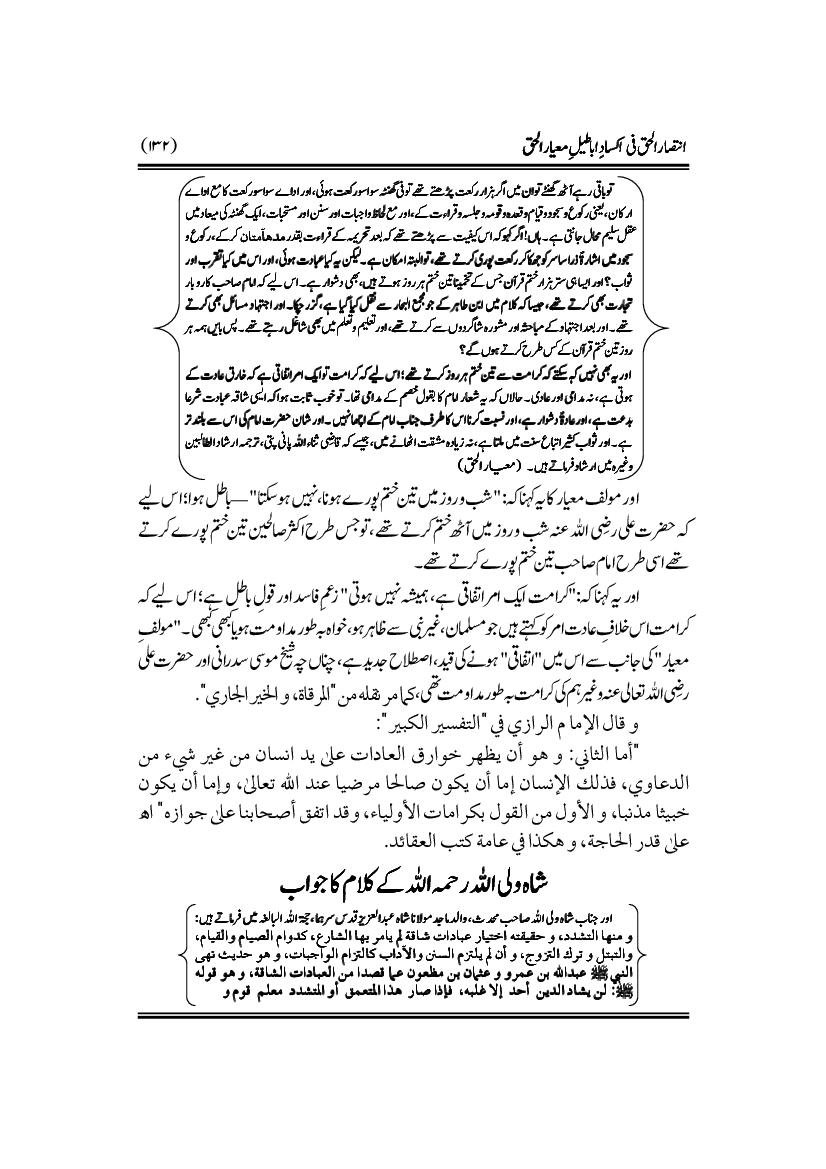 انتصار الحق فی اکسادِ اباطیلِ معیار الحق
(۱۳۲)
تو باقی رہے آٹھ گھنٹے تو ان میں اگر ہزار رکعت پڑھتے تھے تو فی گھنٹہ سوا سو رکعت ہوئی، اور اداے سوا سو رکعت کا مع اداے
ارکان، یعنی رکوع و سجود و قیام و قعدہ و قومہ و جلسہ و قراءت کے، اور مع لحاظ واجبات اور سنن اور مستحبات، ایک گھنٹہ کی میعاد میں
عقل سلیم محال جانتی ہے۔ ہاں! اگر کہو کہ اس کیفیت سے پڑھتے تھے کہ بعد تحریمہ کے قراءت بقدر مدھآمتان کر کے، رکوع و
سجود میں اشارۃً ذرا سا سر کو جھکا کر رکعت پوری کرتے تھے، تو البتہ امکان ہے۔ لیکن یہ کیا عبادت ہوئی، اور اس میں کیا تقرب اور
ثواب؟ اور ایسا ہی ستر ہزار ختم قرآن جس کے تخمیناً تین ختم ہر روز ہوتے ہیں، بھی دشوار ہے۔ اس لیے کہ امام صاحب کاروبار
تجارت بھی کرتے تھے، جیسا کہ کلام میں ابن طاہر کے جو مجمع البحار سے نقل کیا گیا ہے، گزر چکا۔ اور اجتہاد مسائل بھی کرتے
تھے۔ اور بعد اجتہاد کے مباحثہ اور مشورہ شاگردوں سے کرتے تھے، اور تعلیم و تعلم میں بھی شاغل رہتے تھے۔ پس بایں ہمہ ہر
روز تین ختم قرآن کے کس طرح کرتے ہوں گے؟
اور یہ بھی نہیں کہہ سکتے کہ کرامت سے تین ختم ہر روز کرتے تھے؛ اس لیے کہ کرامت تو ایک امر اتفاقی ہے کہ خارق عادت کے
ہوتی ہے، نہ مدامی اور عادی۔ حالاں کہ یہ شعار امام کا بقول خصم کے مدامی تھا۔ تو خوب ثابت ہوا کہ ایسی شاقہ عبادت شرعا
بدعت ہے، اور عادۃً دشوار ہے، اور نسبت کرنا اس کا طرف جناب امام کے اچھا نہیں۔ اور شان حضرت امام کی اس سے بلند تر
ہے۔ اور ثواب کثیر اتباع سنت میں ملتا ہے، نہ زیادہ مشقت اٹھانے میں، جیسے کہ قاضی ثناء اللہ پانی پتی، ترجمہ ارشاد الطالبین
وغیرہ میں ارشاد فرماتے ہیں۔ (معیار الحق)
اور مولف معیار کا یہ کہنا کہ: "شب و روز میں تین ختم پورے ہونا، نہیں ہو سکتا"— باطل ہوا؛ اس لیے
کہ حضرت علی رضی اللہ عنہ شب و روز میں آٹھ ختم کرتے تھے، تو جس طرح اکثر صالحین تین ختم پورے کرتے
تھے اسی طرح امام صاحب تین ختم پورے کرتے تھے۔
اور یہ کہنا کہ: "کرامت ایک امر اتفاقی ہے، ہمیشہ نہیں ہوتی" زعمِ فاسد اور قولِ باطل ہے؛ اس لیے کہ
کرامت اس خلافِ عادت امر کو کہتے ہیں جو مسلمان، غیر نبی سے ظاہر ہو، خواہ بہ طور مداومت ہو یا کبھی کبھی۔ "مولفِ
معیار" کی جانب سے اس میں "اتفاقی" ہونے کی قید، اصطلاح جدید ہے، چناں چہ شیخ موسی سدرانی اور حضرت علی
رضی اللہ تعالی عنہ وغیرہم کی کرامت بہ طور مداومت تھی، کما مر نقله من "المرقاة، و الخير الجاري".
و قال الإمام الرازي في "التفسير الكبير":
"أما الثاني: و هو أن يظهر خوارق العادات على يد انسان من غير شيء من
الدعاوي، فذلك الإنسان إما أن يكون صالحا مرضيا عند الله تعالىٰ، وإما أن يكون
خبيثا مذنبا، و الأول من القول بكرامات الأولياء، وقد اتفق أصحابنا على جوازه" اھ
على قدر الحاجة، و هكذا في عامة كتب العقائد.
شاہ ولی اللہ رحمہ اللہ کے کلام کا جواب
اور جناب شاہ ولی اللہ صاحب محدث، والد ماجد مولانا شاہ عبد العزیز قدس سرہما، حجۃ اللہ البالغہ میں فرماتے ہیں:
و منها التشدد، و حقيقته اختيار عبادات شاقة لم يامر بها الشارع، كدوام الصيام والقيام،
والتبتل و ترك التزوج، و أن لم يلتزم السنن والآداب كالتزام الواجبات، و هو حديث نهى
النبي ﷺ عبدالله بن عمرو و عثمان بن مظعون عما قصدا من العبادات الشاقة، و هو قوله
ﷺ: لن يشاد الدين أحد إلا غلبه، فإذا صار هذا المتعمق أو المتشدد معلم قوم و